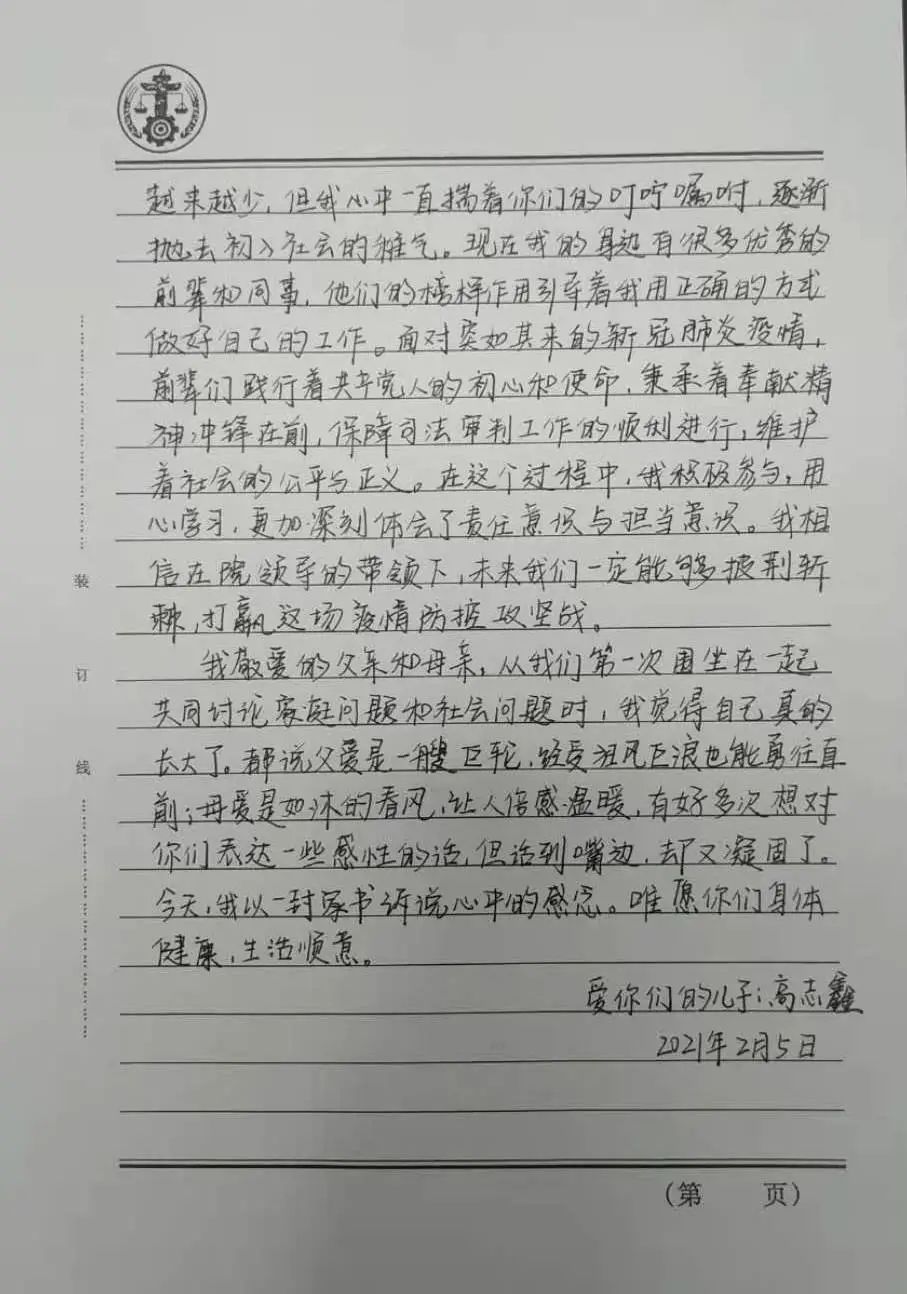 越来越少，但我心中一直揣着你们的叮咛嘱咐，逐渐
抛去初入社会的稚气。现在我的身边有很多优秀的
前辈和同事，他们的榜样作用引导着我用正确的方式
做好自己的工作。面对突如其来的新冠肺炎疫情，
前辈们践行着共产党人的初心和使命，秉承着奉献精
神冲锋在前，保障司法审判工作的顺利进行，维护
着社会的公平与正义。在这个过程中，我积极参与，用
心学习，更加深刻体会了责任意识与担当意识。我相
信在院领导的带领下，未来我们一定能够披荆斩
棘，打赢这场疫情防控攻坚战。
我敬爱的父亲和母亲，从我们第一次围坐在一起
共同讨论家庭问题和社会问题时，我觉得自己真的
长大了。都说父爱是一艘巨轮，经受狂风巨浪也能勇往直
前；母爱是如沐的春风，让人倍感温暖，有好多次想对
你们表达一些感性的话，但话到嘴边，却又凝固了。
今天，我以一封家书诉说心中的感念。唯愿你们身体
健康，生活顺意。
爱你们的儿子：高志鑫
2021年2月5日
装
订
线
（第 页）